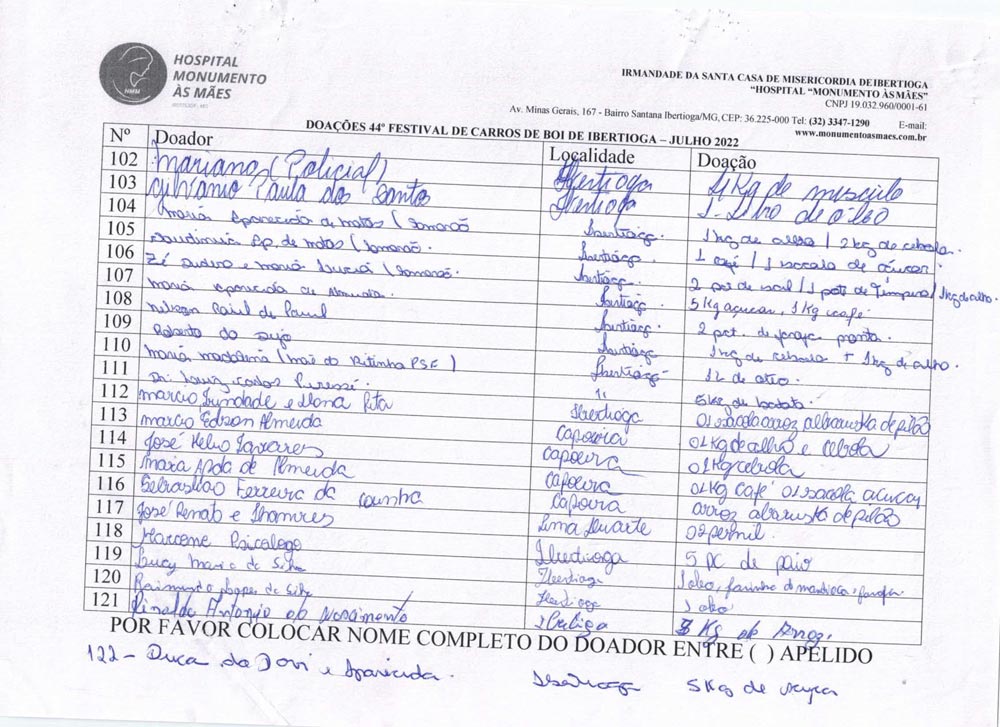 HOSPITAL
MONUMENTO
ÀS MÃES
HMM
IRMANDADE DA SANTA CASA DE MISERICORDIA DE IBERTIOGA
"HOSPITAL "MONUMENTO ÀS MÃES"
CNPJ 19.032.960/0001-61
Av. Minas Gerais, 167 - Bairro Santana Ibertioga/MG, CEP: 36.225-000 Tel: (32) 3347-1290 E-mail:
www.monumentoasmaes.com.br
DOAÇÕES 44º FESTIVAL DE CARROS DE BOI DE IBERTIOGA – JULHO 2022
Nº Doador Localidade Doação
102 Mariano (Policial) Ibertioga 4 Kg de musculo
103 Paula dos Santos Ibertioga 1 Litro de óleo
104 Maria Aparecida de Matos ( Ibertioga 1 kg de alho / 2 kg de cebola.
105 Ap. de Matos ( Ibertioga 1 café / 1 sacola de açucar.
106 Zé e Maria Lucia ( Ibertioga 2 de sal / 1 pote de tempero / 1 kg de alho.
107 Maria Aparecida de Almeida. Ibertioga 5 Kg açucar, 1 Kg café
108 Nelson Raul de Paul Ibertioga 2 pct. de
109 Roberto do Ibertioga 1 kg de cebola + 1 kg de alho.
110 Maria Madalena (mãe do Ritinha PSF) Ibertioga 1 L de
111 Dr. Luiz Carlos 11 5 Kg de batata.
112 Marcio Trindade e Dona Rita Ibertioga 01 sacola arroz de pilão
113 Marcio Edson Almeida Capoeira 01 Kg de alho e cebola
114 José Helio Tavares Capoeira 01 Kg cebola
115 Maria Apda de Almeida Capoeira 01 Kg café 01 sacola açucar
116 Sebastião Ferreira da Cunha Capoeira arroz de pilão
117 José Renato e Thamires Lima Duarte 02 pernil.
118 Psicologo Ibertioga 5 PC de paio
119 Lucy Maria da Silva Ibertioga 1 oleo, farinha d mandioca, farofa
120 Raimundo Lopes da Silva Ibertioga 1 oleo
121 Rinaldo Antonio do Nascimento Ibertioga 5 Kg de Arroz.
POR FAVOR COLOCAR NOME COMPLETO DO DOADOR ENTRE ( ) APELIDO
122 - Duca da Jovi e Aparecida. Ibertioga 5 Kg de